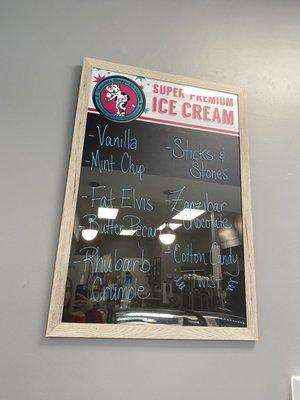 SUPER-PREMIUM
ICE CREAM
-Vanilla
-Mint Chip
-Fat Elvis
-Butter Pecan
-Rhubarb
Crumble
-Sticks &
Stones
-Zanzibar
Chocolate
-Cotton Candy
Twist